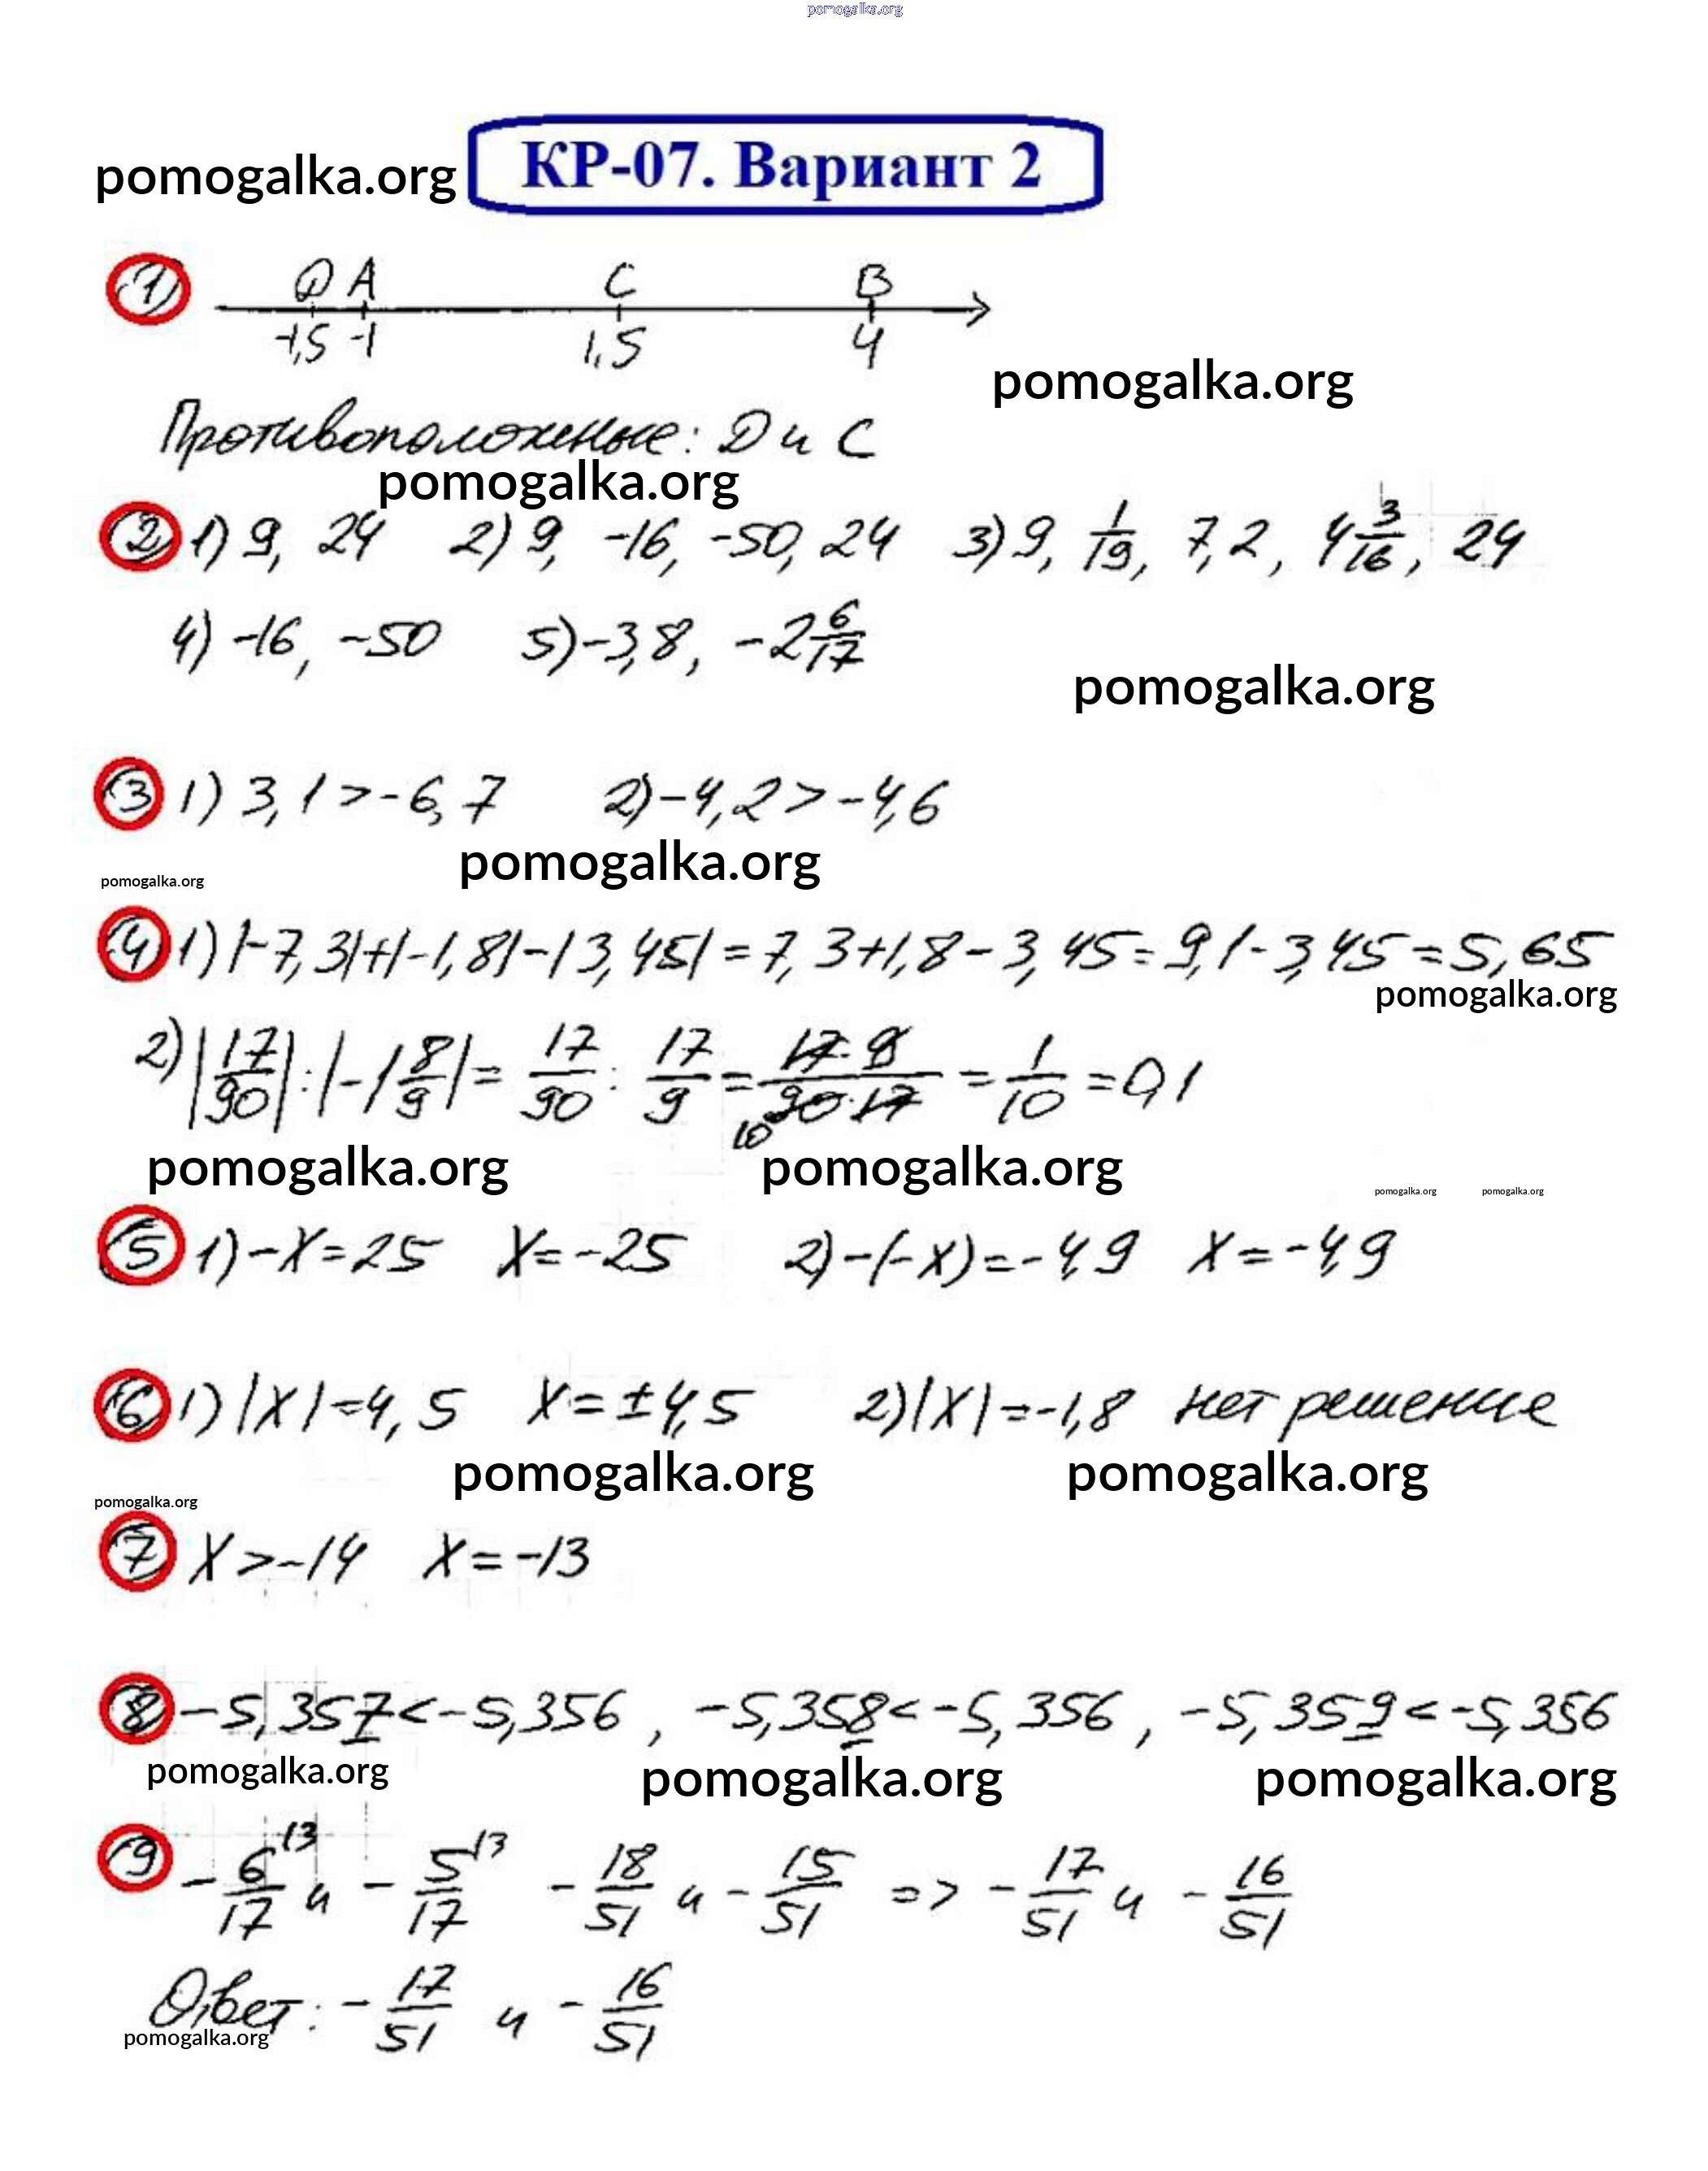 pomogalka.org
pomogalka.org КР-07. Вариант 2
1) D A C B
-1,5 -1 1,5 4
pomogalka.org
Противоположные: D и C
pomogalka.org
2) 1) 9, 24 2) 9, -16, -50, 24 3) 9, 1/19, 7,2, 4 3/16, 24
4) -16, -50 5) -3,8, -2 6/17
pomogalka.org
3) 1) 3,1 > -6,7 2) -4,2 > -4,6
pomogalka.org
pomogalka.org
4) 1) |-7,3|+|-1,8|-|3,45| = 7,3+1,8-3,45 = 9,1-3,45 = 5,65
pomogalka.org
2) |17/90| : |-1 8/9| = 17/90 : 17/9 = 17·9/90·17 = 1/10 = 0,1
10
pomogalka.org pomogalka.org
pomogalka.org pomogalka.org
5) 1) -x = 25 x = -25 2) -(-x) = -4,9 x = -4,9
6) 1) |x| = 4,5 x = ±4,5 2) |x| = -1,8 нет решение
pomogalka.org pomogalka.org
pomogalka.org
7) x > -14 x = -13
8) -5,357 < -5,356, -5,358 < -5,356, -5,359 < -5,356
pomogalka.org pomogalka.org pomogalka.org
9) -6/17 \3 и -5/17 \3 -18/51 и -15/51 => -17/51 и -16/51
Ответ: -17/51 и -16/51
pomogalka.org